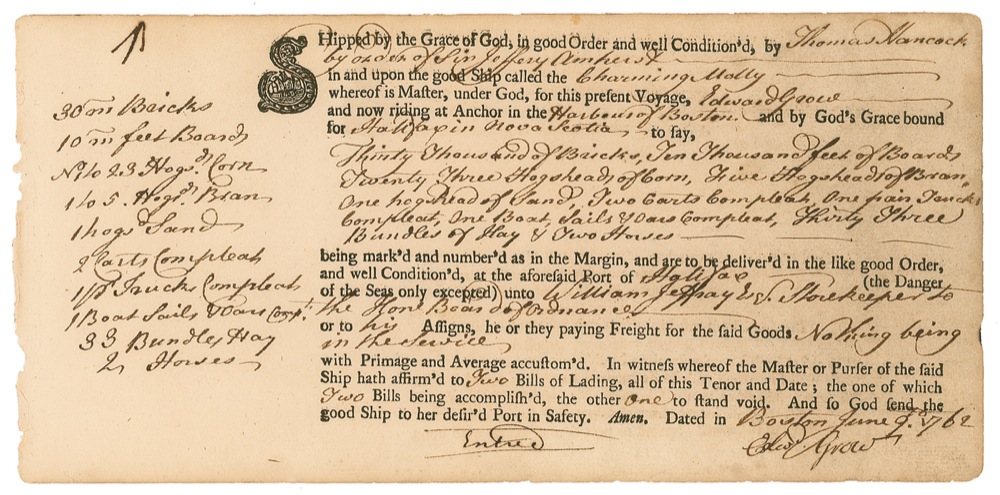 SHipped by the Grace of God, in good Order and well Condition'd, by Thomas Hancock
by order of Sir Jeffery Amherst
in and upon the good Ship called the Charming Molly
whereof is Master, under God, for this present Voyage, Edward Grow
and now riding at Anchor in the Harbour of Boston and by God's Grace bound
for Halifax in Nova Scotia to say,
Thirty Thousand of Bricks, Ten Thousand feet of Boards
Twenty Three Hogsheads of Corn, Five Hogsheads of Bran,
One hogshead of Sand, Two Carts Compleat, One pair Trucks
Compleat, One Boat, Sails & Oars Compleat, Thirty Three
Bundles of Hay & Two Horses
30 m Bricks
10 m feet Boards
No. 1 to 23 Hogsds. Corn
1 to 5. Hogds. Bran
1 hogsd Sand
2 Carts Compleat
1 pr Trucks Compleat
1 Boat Sails & Oars Compt.
33 Bundles Hay
2 Horses
being mark'd and number'd as in the Margin, and are to be deliver'd in the like good Order,
and well Condition'd, at the aforesaid Port of Halifax (the Danger
of the Seas only excepted) unto William Jeffray Esq. Storekeeper to
the Honl. Board of Ordnance
or to his Assigns, he or they paying Freight for the said Goods Nothing being
in the Service
with Primage and Average accustom'd. In witness whereof the Master or Purser of the said
Ship hath affirm'd to Two Bills of Lading, all of this Tenor and Date; the one of which
Two Bills being accomplish'd, the other One to stand void. And so God send the
good Ship to her desir'd Port in Safety. Amen. Dated in Boston June 9. 1762
Entred
Edwd Grow